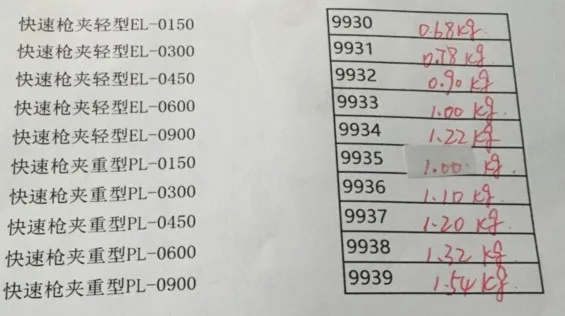 快速枪夹轻型EL-0150 9930 0.68kg
快速枪夹轻型EL-0300 9931 0.78kg
快速枪夹轻型EL-0450 9932 0.90kg
快速枪夹轻型EL-0600 9933 1.00kg.
快速枪夹轻型EL-0900 9934 1.22kg
快速枪夹重型PL-0150 9935 1.00 kg.
快速枪夹重型PL-0300 9936 1.10kg
快速枪夹重型PL-0450 9937 1.20kg.
快速枪夹重型PL-0600 9938 1.32kg
快速枪夹重型PL-0900 9939 1.54kg.